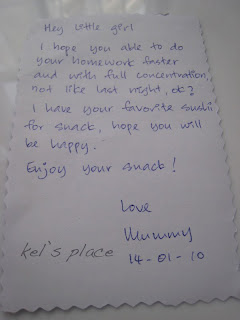 Hey Little girl
I hope you able to do
your homework faster
and with full concentration,
not like last night, ok?
I have your favorite sushi
for snack, hope you will
be happy.
Enjoy your snack!
Love
Mummy
kel's place 14-01-10